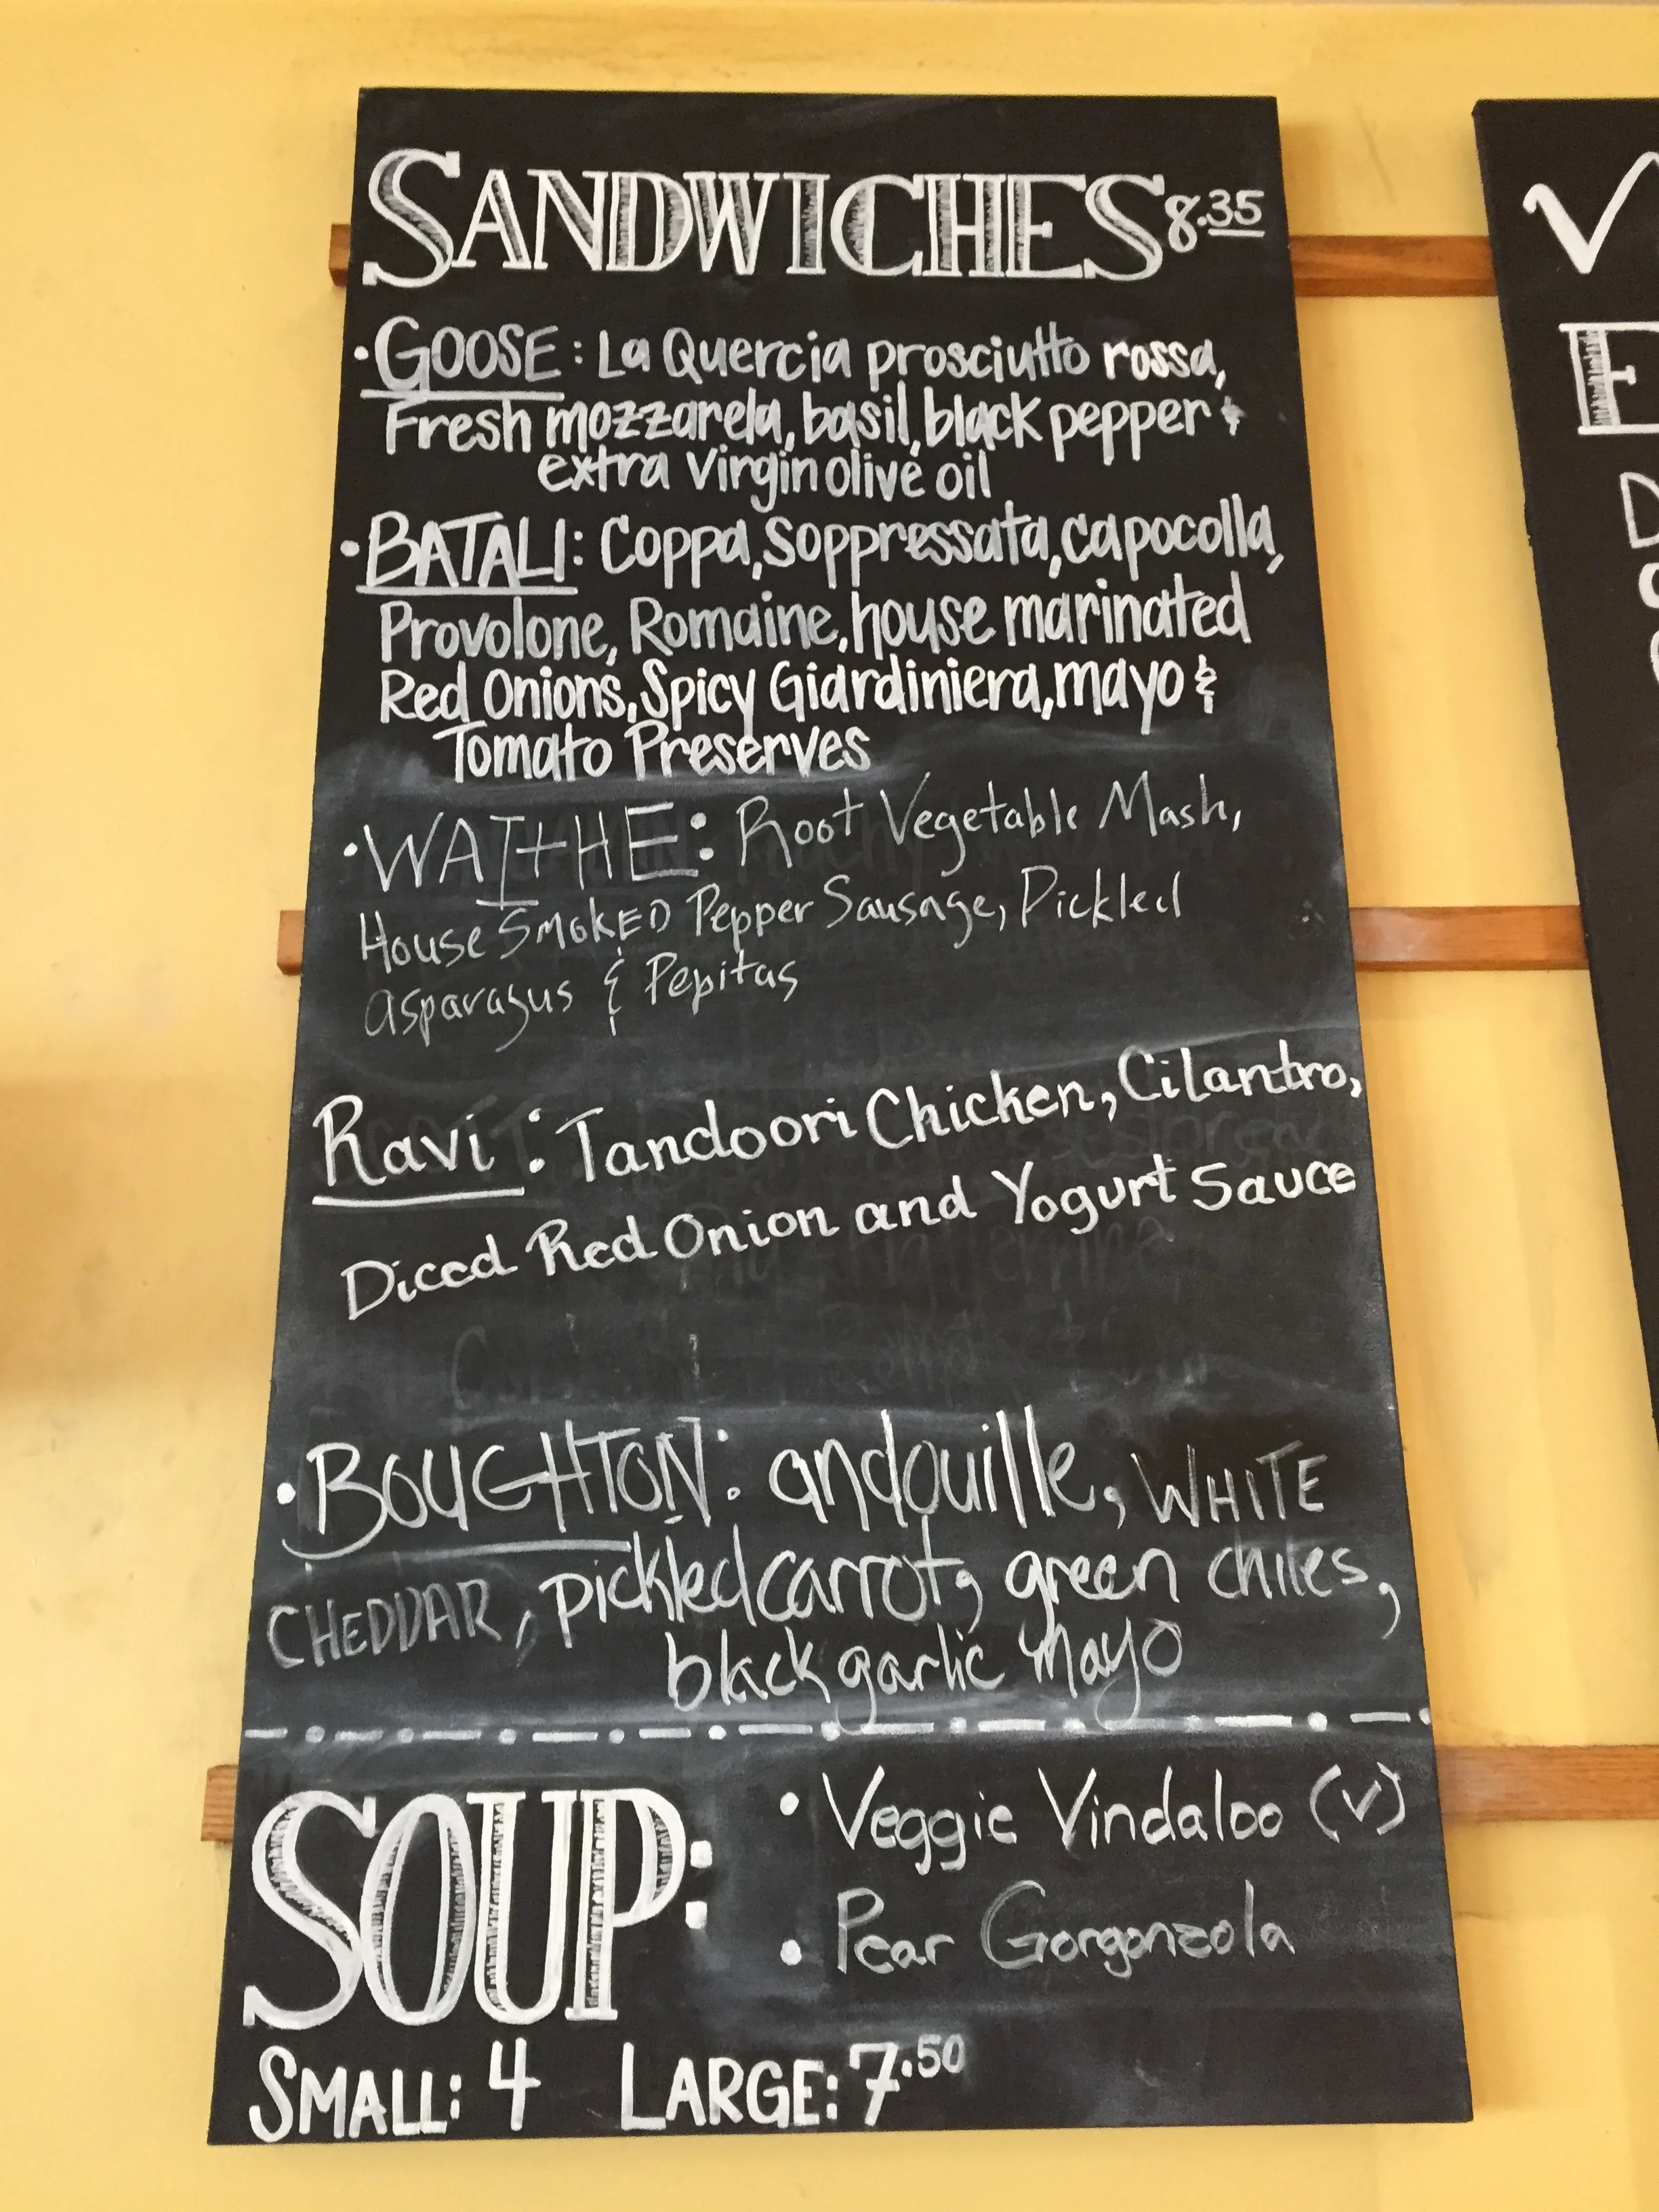 SANDWICHES 8.35
• GOOSE: La Quercia prosciutto rossa,
Fresh mozzarela, basil, black pepper &
extra virgin olive oil
• BATALI: Coppa, Soppressata, capocolla,
Provolone, Romaine, house marinated
Red Onions, Spicy Giardiniera, mayo &
Tomato Preserves
• WATHE: Root Vegetable Mash,
House SMOKED Pepper Sausage, Pickled
asparagus & Pepitas
Ravi: Tandoori Chicken, Cilantro,
Diced Red Onion and Yogurt Sauce
• BOUGHTON: andouille, WHITE
CHEDDAR, pickled carrot, green chiles,
black garlic mayo
SOUP:
• Veggie Vindaloo (v)
• Pear Gorgonzola
SMALL: 4 LARGE: 7.50